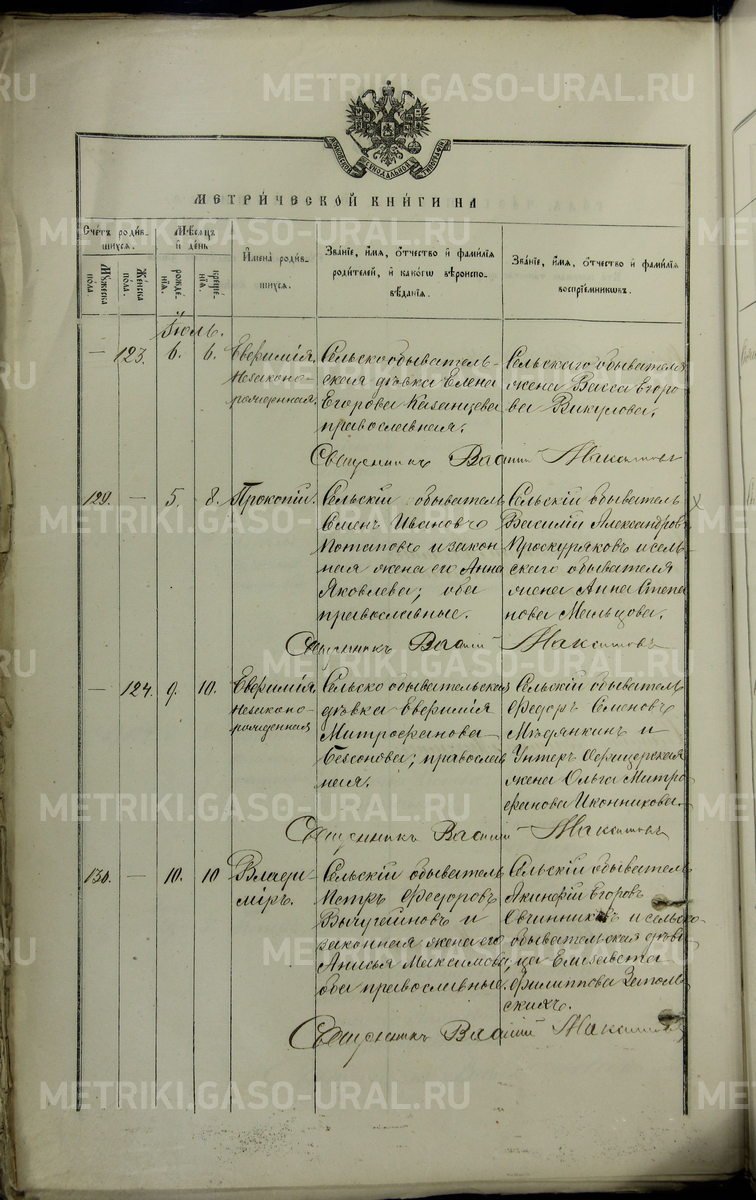 МЕТРИ́ЧЕСКОЙ КНИ́ГИ НА
Счетъ роди́в-
шихся.
Му́жеска
по́ла.
Же́нска
по́ла.
Мѣ́сяцъ
и҆ де́нь
рожде́-
нїѧ.
креще́-
нїѧ.
И҆мена̀ роди́в-
шихся.
Зва́нїе, и҆́мя, о҆́тчество и҆ фами́лїя
роди́телей, и҆ како́гѡ вѣроиспо-
вѣ́данїя.
Зва́нїе, и҆́мя, о҆́тчество и҆ фами́лїя
воспрїе́мникѡвъ.
Іюль.
— 123. 6. 6.
Евфимія.
Незаконо-
рожденная.
Сельскообыватель-
ская дѣвка Елена
Егорова Казанцева
православная.
Сельскаго обывателя
жена Васса Егоро-
ва Викулова.
Священникъ Василій Максимовъ
129. — 5. 8.
Прокопій.
Сельскій обыватель
Семенъ Ивановъ
Потаповъ и закон
ная жена его Анна
Яковлева; оба
православные.
Сельскій обыватель
Василій Александровъ
Проскуряковъ и сель-
скаго обывателя
жена Анна Степа
нова Мальцова.
Священникъ Василій Максимовъ
— 124. 9. 10.
Евфимія.
Незаконо-
рожденная
Сельскообывательская
дѣвка Евфимія
Митрофанова
Безсонова; православ
ная.
Сельскій обыватель
Федоръ Семеновъ
Мѣдянкинъ и
Унтеръ Офицерская
жена Ольга Митро
фанова Иконникова.
Священникъ Василій Максимовъ
130. — 10. 10
Влади-
міръ.
Сельскій обыватель
Петръ Федоровъ
Вычугжиновъ и
законная жена его
Анисья Максимова,
оба православные.
Сельскій обыватель
Акинфій Егоровъ
Овчинниковъ и сельско-
обывательская дѣви
ца Елисавета
Филиппова
скихъ.
Священникъ Василій Максимовъ
METRIKI.GASO-URAL.RU